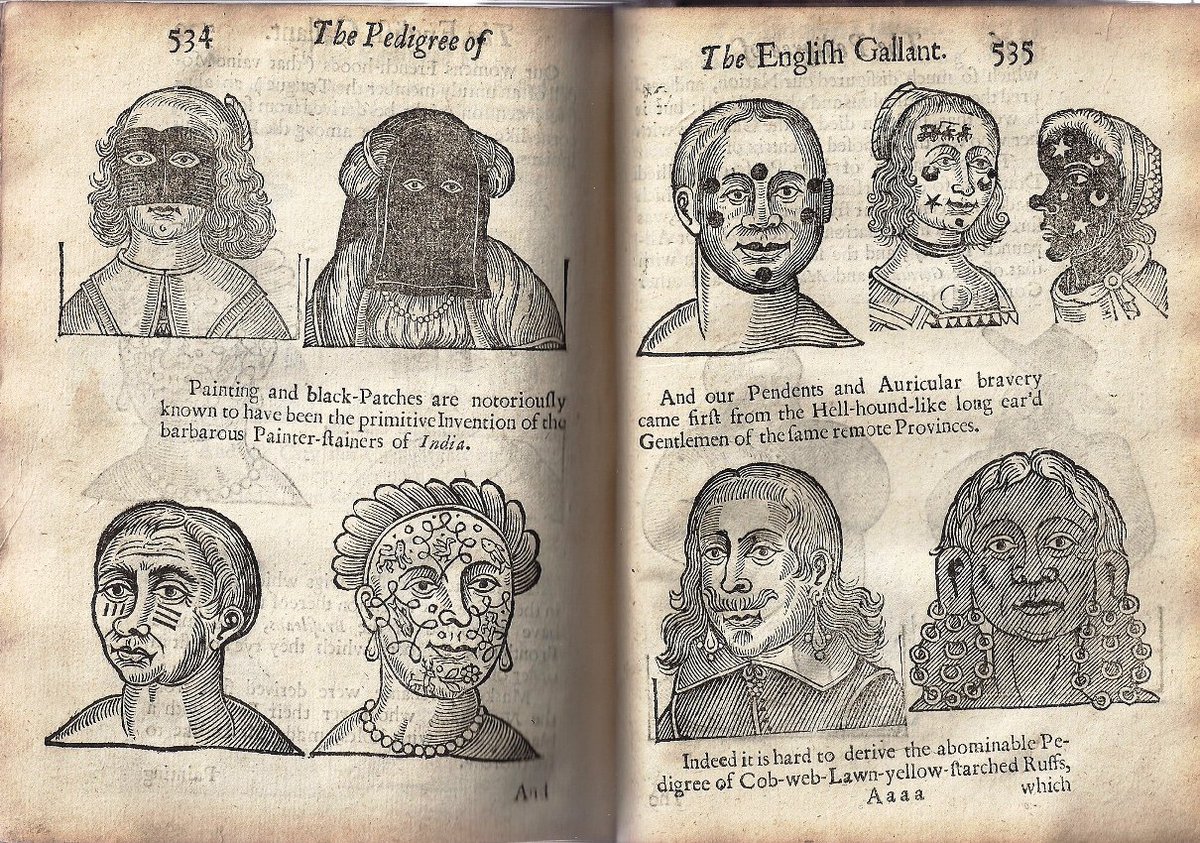 534
The Pedigree of
Painting and black-Patches are notoriouſly
known to have been the primitive Invention of the
barbarous Painter-ſtainers of India.
And
The Engliſh Gallant.
535
And our Pendents and Auricular bravery
came firſt from the Hell-hound-like long ear'd
Gentlemen of the ſame remote Provinces.
Indeed it is hard to derive the abominable Pe-
digree of Cob-web-Lawn-yellow-ſtarched Ruffs,
Aaaa
which